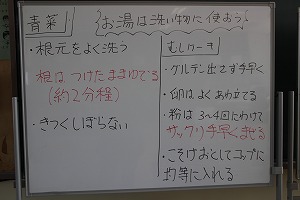 お湯は洗い物に使おう!
青菜
・根元をよく洗う
根は つけたままゆでる
(約2分程)
・きつくしぼらない
むしケーキ
・グルテン出さず手早く
・卵はよくあわ立てる
・粉は 3~4回にわけて
サックリ手早くませる
・こそげおとしてコップに
均等に入れる